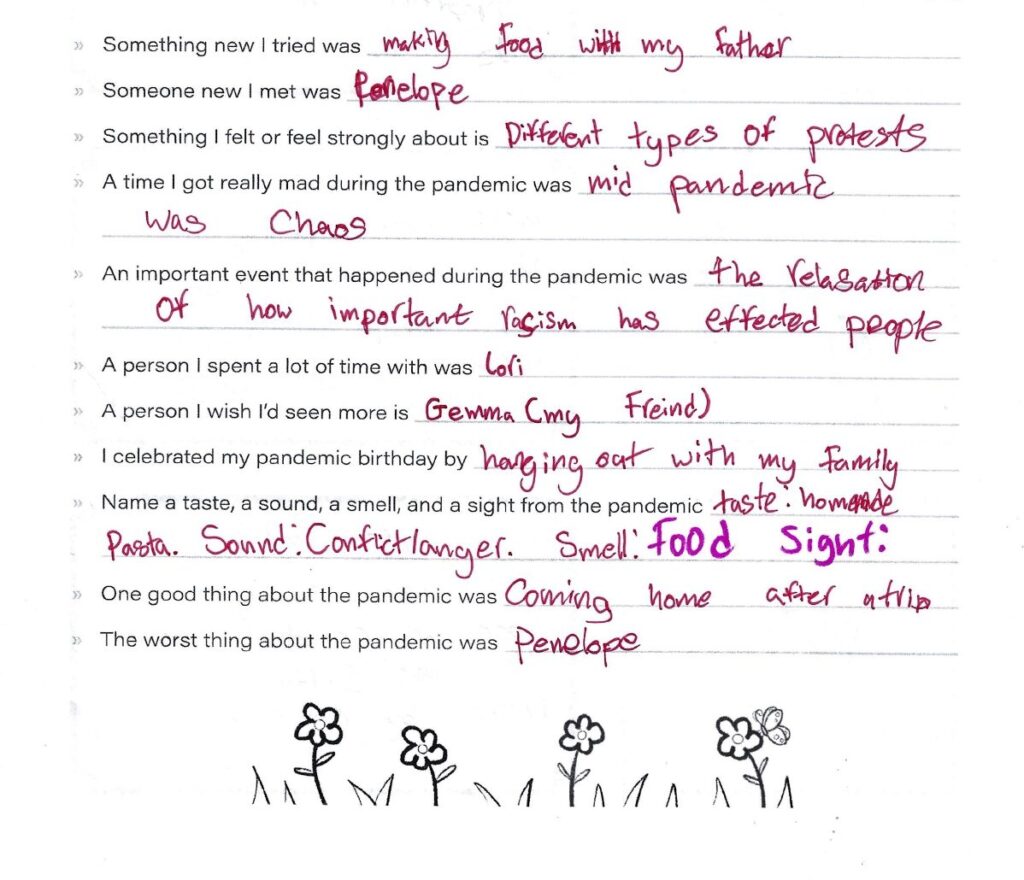 » Something new I tried was making food with my father
» Someone new I met was Penelope
» Something I felt or feel strongly about is Different types of protests
» A time I got really mad during the pandemic was mid pandemic
was Chaos
» An important event that happened during the pandemic was the relasation
Of how important racism has effected people
» A person I spent a lot of time with was Lori
» A person I wish I'd seen more is Gemma (my Freind)
» I celebrated my pandemic birthday by hanging out with my family
» Name a taste, a sound, a smell, and a sight from the pandemic taste: homemade
Pasta. Sound: Conflict/anger. Smell: Food Sight:
» One good thing about the pandemic was Coming home after a trip
» The worst thing about the pandemic was Penelope